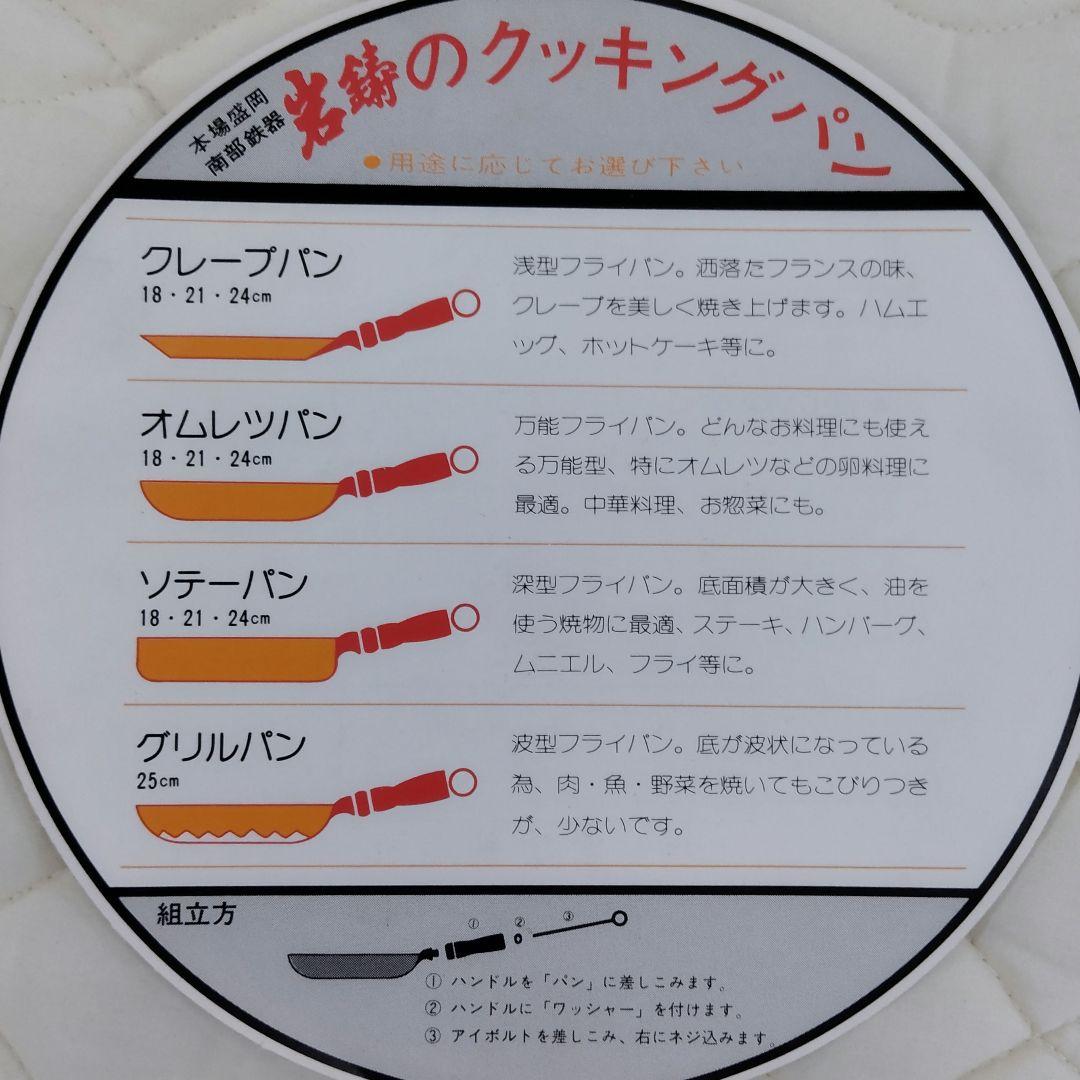 本場盛岡
南部鉄器
岩鋳のクッキングパン
●用途に応じてお選び下さい
クレープパン
18・21・24cm
浅型フライパン。洒落たフランスの味、
クレープを美しく焼き上げます。ハムエ
ッグ、ホットケーキ等に。
オムレツパン
18・21・24cm
万能フライパン。どんなお料理にも使え
る万能型、特にオムレツなどの卵料理に
最適。中華料理、お惣菜にも。
ソテーパン
18・21・24cm
深型フライパン。底面積が大きく、油を
使う焼物に最適、ステーキ、ハンバーグ、
ムニエル、フライ等に。
グリルパン
25cm
波型フライパン。底が波状になっている
為、肉・魚・野菜を焼いてもこびりつき
が、少ないです。
組立方
① ② ③
① ハンドルを「パン」に差しこみます。
② ハンドルに「ワッシャー」を付けます。
③ アイボルトを差しこみ、右にネジ込みます。